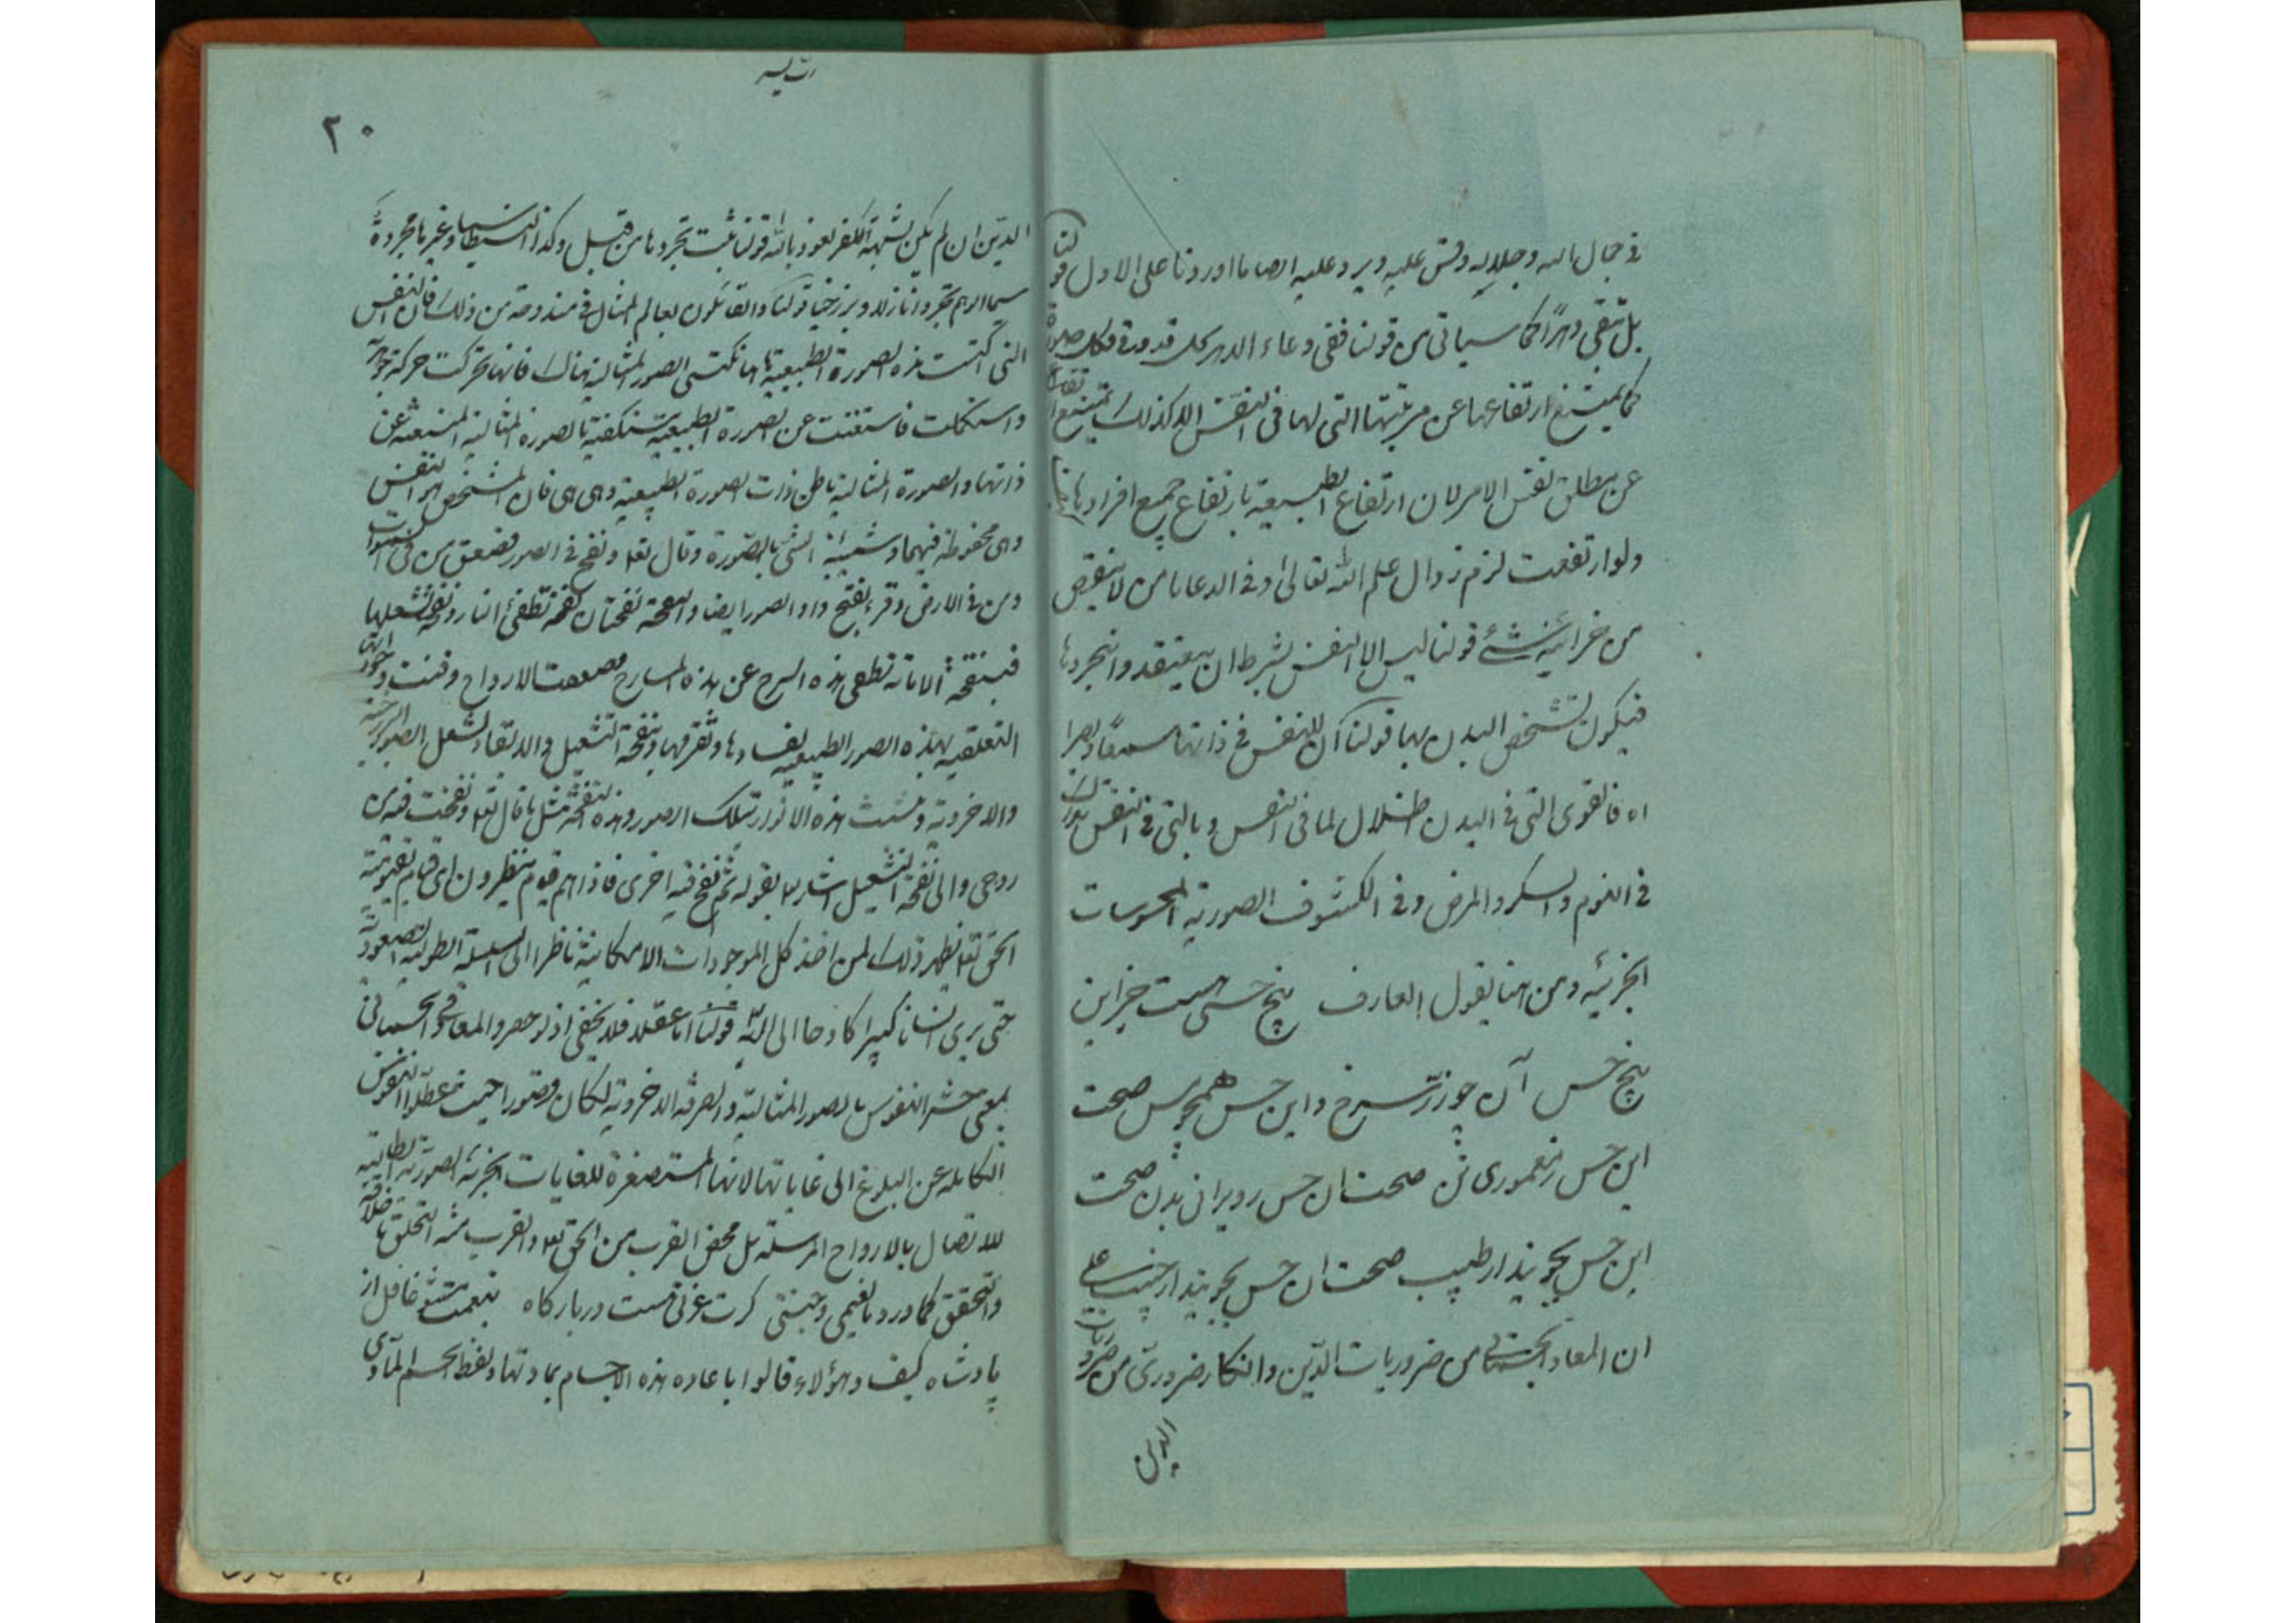 فی جمال الله و جلاله وقس علیه ویرد علیه ایضا ما اوردنا علی الاول قولنا
بل تبقی دهرا کما سیاتی من قولنا ففی وعاء الدهر کل قد وقی فکل صورة
کما یمتنع ارتفاعها عن مرتبتها التی لها فی النفس الا کذلک یمتنع ارتفاعها
عن مطلق نفس الامر لان ارتفاع الطبیعة بارتفاع جمیع افرادها
ولو ارتفعت لزم زوال علم الله تعالی و فی الدعا یا من لا ینقص
من خزائنه شئ قولنا لیس الا النفس بشرط ان یعتقدوا تجردها
فیکون تشخص البدن بها قولنا ان للنفس فی ذاتها سمعا و بصرا
اه فالقوی التی فی البدن اظلال لما فی النفس و بالتی فی النفس تدرک
فی النوم والسکر والمرض و فی الکشوف الصوریة المحسوسات
الجزئیه و من هنا یقول العارف پنج حسی هست جز این
پنج حس آن چو زر سرخ و این حس همچو مس صحت
این حس ز معموری تن صحت ان حس ز ویرانی بدن صحت
این حس بجویید از طبیب صحت ان حس بجویید از حبیب
ان المعاد الجسمانی من ضروریات الدین وانکار ضروری من ضروریات
الدین
۲۰
الدین ان لم یکن لشبهة الکفر نعوذ بالله قولنا ثبت تجردها من قبل وکذا الشیطان و غیرها مجردة
سیما اذا لم تجردا نازلا و برزخیا قولنا والقائلون بعالم المثال فی مندوحة من ذلک فان النفس
التی اکتست هذه الصورة الطبیعیة هاهنا تکتسی الصور المثالیة هناک فانها تحرکت حرکة جوهریة
واستکملت فاستغنت عن الصورة الطبیعیة مستکفیة بالصورة المثالیة المنبعثة عن
ذاتها والصورة المثالیة باطن ذات الصورة الطبیعیة وهی هی فان المشخص هو النفس
وهی محفوظة فیهما وشیئیة الشئ بالصورة و قال تعالی و نفخ فی الصور فصعق من فی السموات
ومن فی الارض و قرء بفتح واو الصور ایضا والنفخة نفختان نفخة تطفئ النار و نفخة تشعلها
فبنفخة الاماته تطفی هذه السرج عن هذه المسارج فصعقت الارواح و فنت وجوداتها
التعلقیه بهذه الصور الطبیعیه بفسادها و تفرقها و بنفخة التشعیل والایقاد تشعل الصور البرزخیة
والاخرویة و تشبثت هذه الانوار بتلک الصور و هذه النفخة مثل ما قال تعالی و نفخت فیه من
روحی والی نفخة التشعیل اشار بقوله ثم نفخ فیه اخری فاذا هم قیام ینظرون ای قیام بقیومیة
الحق تعالی یظهر ذلک لمن اخذ کل الموجودات الامکانیة ناظرا الی السلسلة الطولیة الصعودیة
حتی یری انسانا کبیرا کادحا الی الله قولنا اما عقلا فلا یخفی اذ لو حصر المعاد فی الجسمانی
بمعنی حشر النفوس بالصور المثالیة والصرفة الاخرویة لکان قصورا حیث عطلوا النفوس
الکاملة عن البلوغ الی غایاتها لانها المستصغرة للغایات الجزئیة الصوریة الطالبة
للاتصال بالارواح المرسلة بل محض القرب من الحق تعالی والقرب منه التخلق باخلاقه
والتحقق کما ورد یا نعیمی و جنتی گرت عزتی هست در بارگاه بنعمت مشو غافل از
پادشاه کیف و هؤلاء قالوا باعاده هذه الاجسام بمادتها و لفظ الجسم المادی